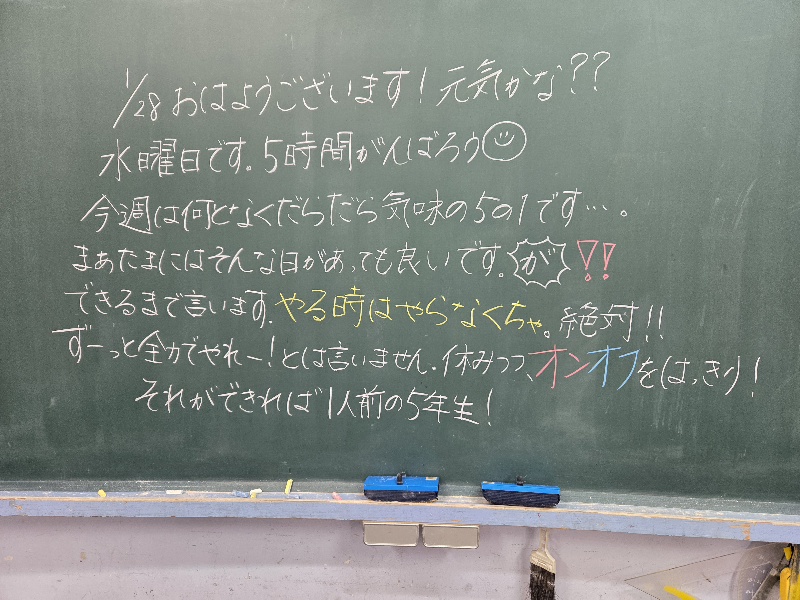 1/28 おはようございます！元気かな??
水曜日です。5時間がんばろう
今週は何となくだらだら気味の5の1です…。
まぁたまにはそんな日があっても良いです。が!!
できるまで言います。やる時はやらなくちゃ。絶対!!
ずーっと全力でやれー！とは言いません。休みつつ、オンオフをはっきり！
それができれば1人前の5年生！